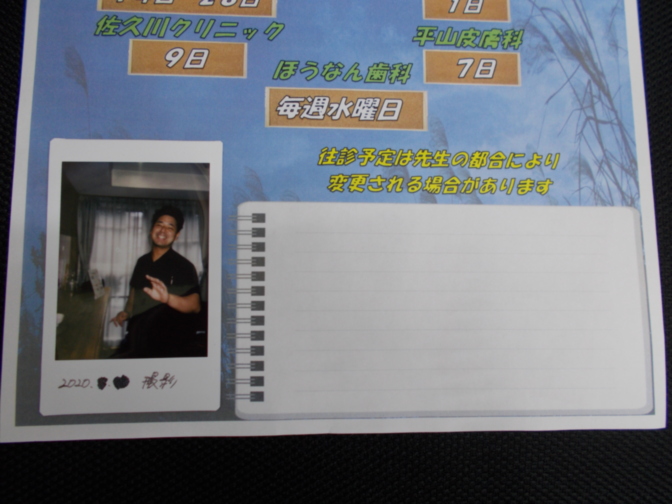 佐久川クリニック
平山皮膚科
9日
ほうなん歯科
7日
毎週水曜日
往診予定は先生の都合により
変更される場合があります
2020. 撮影